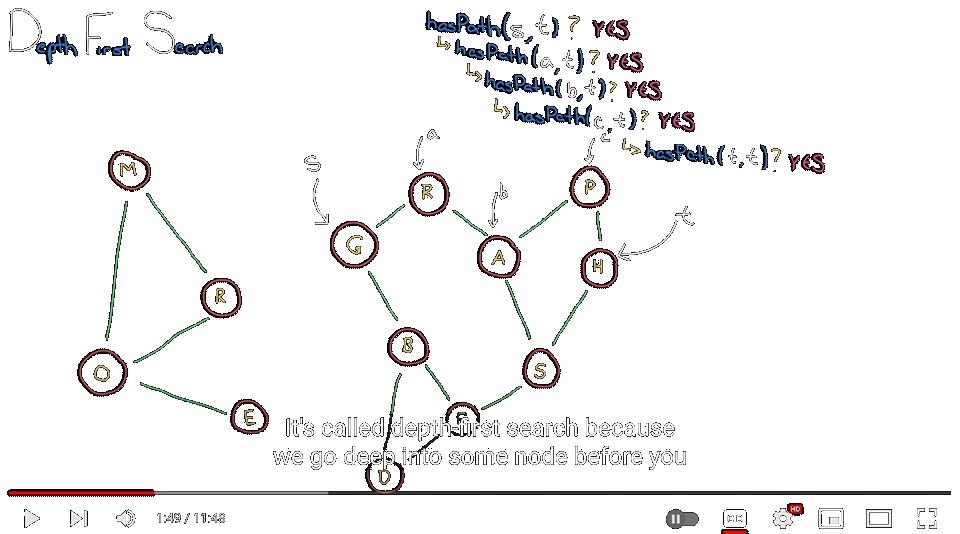 Depth First Search
hasPath(s, t)? YES
↳hasPath(a, t)? YES
↳hasPath(b, t)? YES
↳hasPath(c, t)? YES
↳hasPath(t, t)? YES
a
c
s
b
t
M
R
P
R
G
A
H
B
S
O
E
D
It's called depth-first search because
we go deep into some node before you
1:49 / 11:48
CC
HD